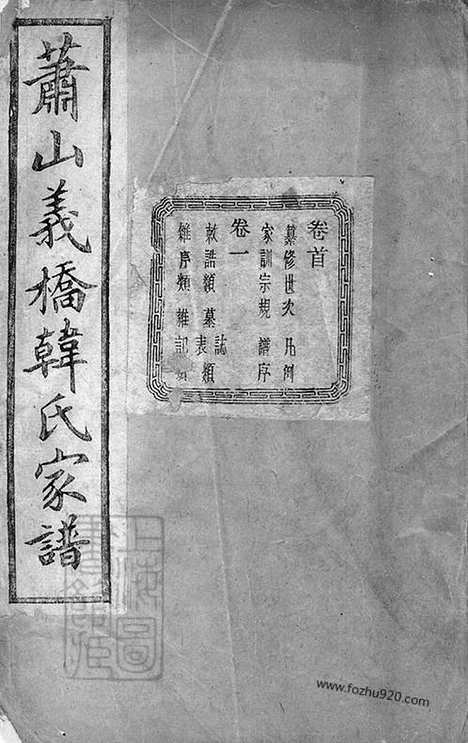 蕭山義橋韓氏家譜
卷首
纂修世次 凡例
家訓宗規 譜序
卷一
敕誥類墓誌表類
雜序類 雜記類
上海圖書館藏
www.fozhu920.com